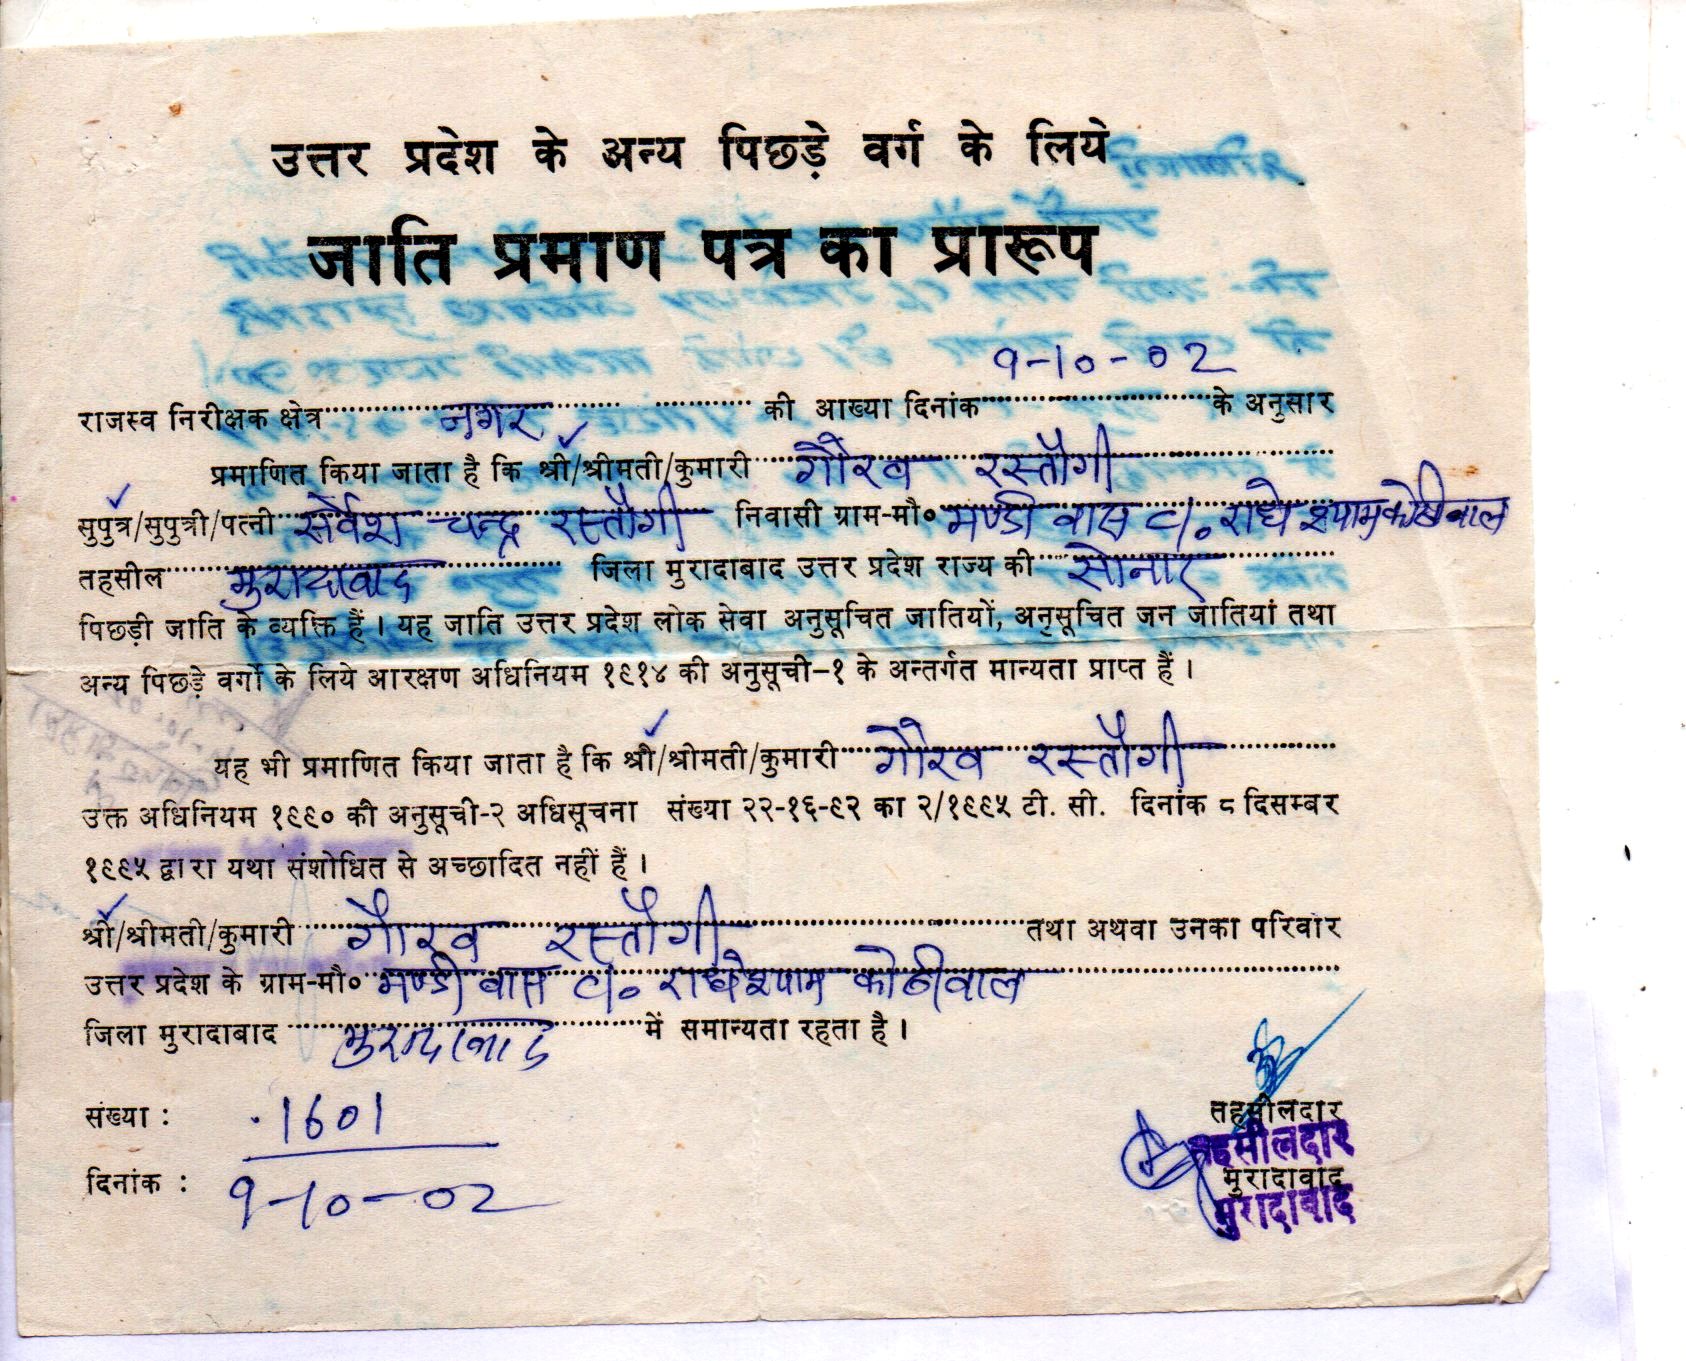 उत्तर प्रदेश के अन्य पिछड़े वर्ग के लिये
जाति प्रमाण पत्र का प्रारूप
9-10-02
राजस्व निरीक्षक क्षेत्र नगर की आख्या दिनांक के अनुसार
प्रमाणित किया जाता है कि श्री/श्रीमती/कुमारी गौरव रस्तौगी
सुपुत्र/सुपुत्री/पत्नी सर्वेश चन्द्र रस्तौगी निवासी ग्राम-मौ० मण्डी वास c/o राधे श्याम कोठीवाल
तहसील मुरादाबाद जिला मुरादाबाद उत्तर प्रदेश राज्य की सोनार
पिछड़ी जाति के व्यक्ति हैं। यह जाति उत्तर प्रदेश लोक सेवा अनुसूचित जातियों, अनुसूचित जन जातियां तथा
अन्य पिछड़े वर्गो के लिये आरक्षण अधिनियम १९१४ की अनुसूची-१ के अन्तर्गत मान्यता प्राप्त हैं।
यह भी प्रमाणित किया जाता है कि श्री/श्रीमती/कुमारी गौरव रस्तौगी
उक्त अधिनियम १९९० की अनुसूची-२ अधिसूचना संख्या २२-१६-९२ का २/१९९५ टी. सी. दिनांक ८ दिसम्बर
१९९५ द्वारा यथा संशोधित से अच्छादित नहीं हैं।
श्री/श्रीमती/कुमारी गौरव रस्तौगी तथा अथवा उनका परिवार
उत्तर प्रदेश के ग्राम-मौ० मण्डी वास c/o राधेश्याम कोठीवाल
जिला मुरादाबाद मुरादाबाद में समान्यता रहता है।
संख्या : 1601
दिनांक : 9-10-02
तहसीलदार
तहसीलदार
मुरादाबाद
मुरादाबाद